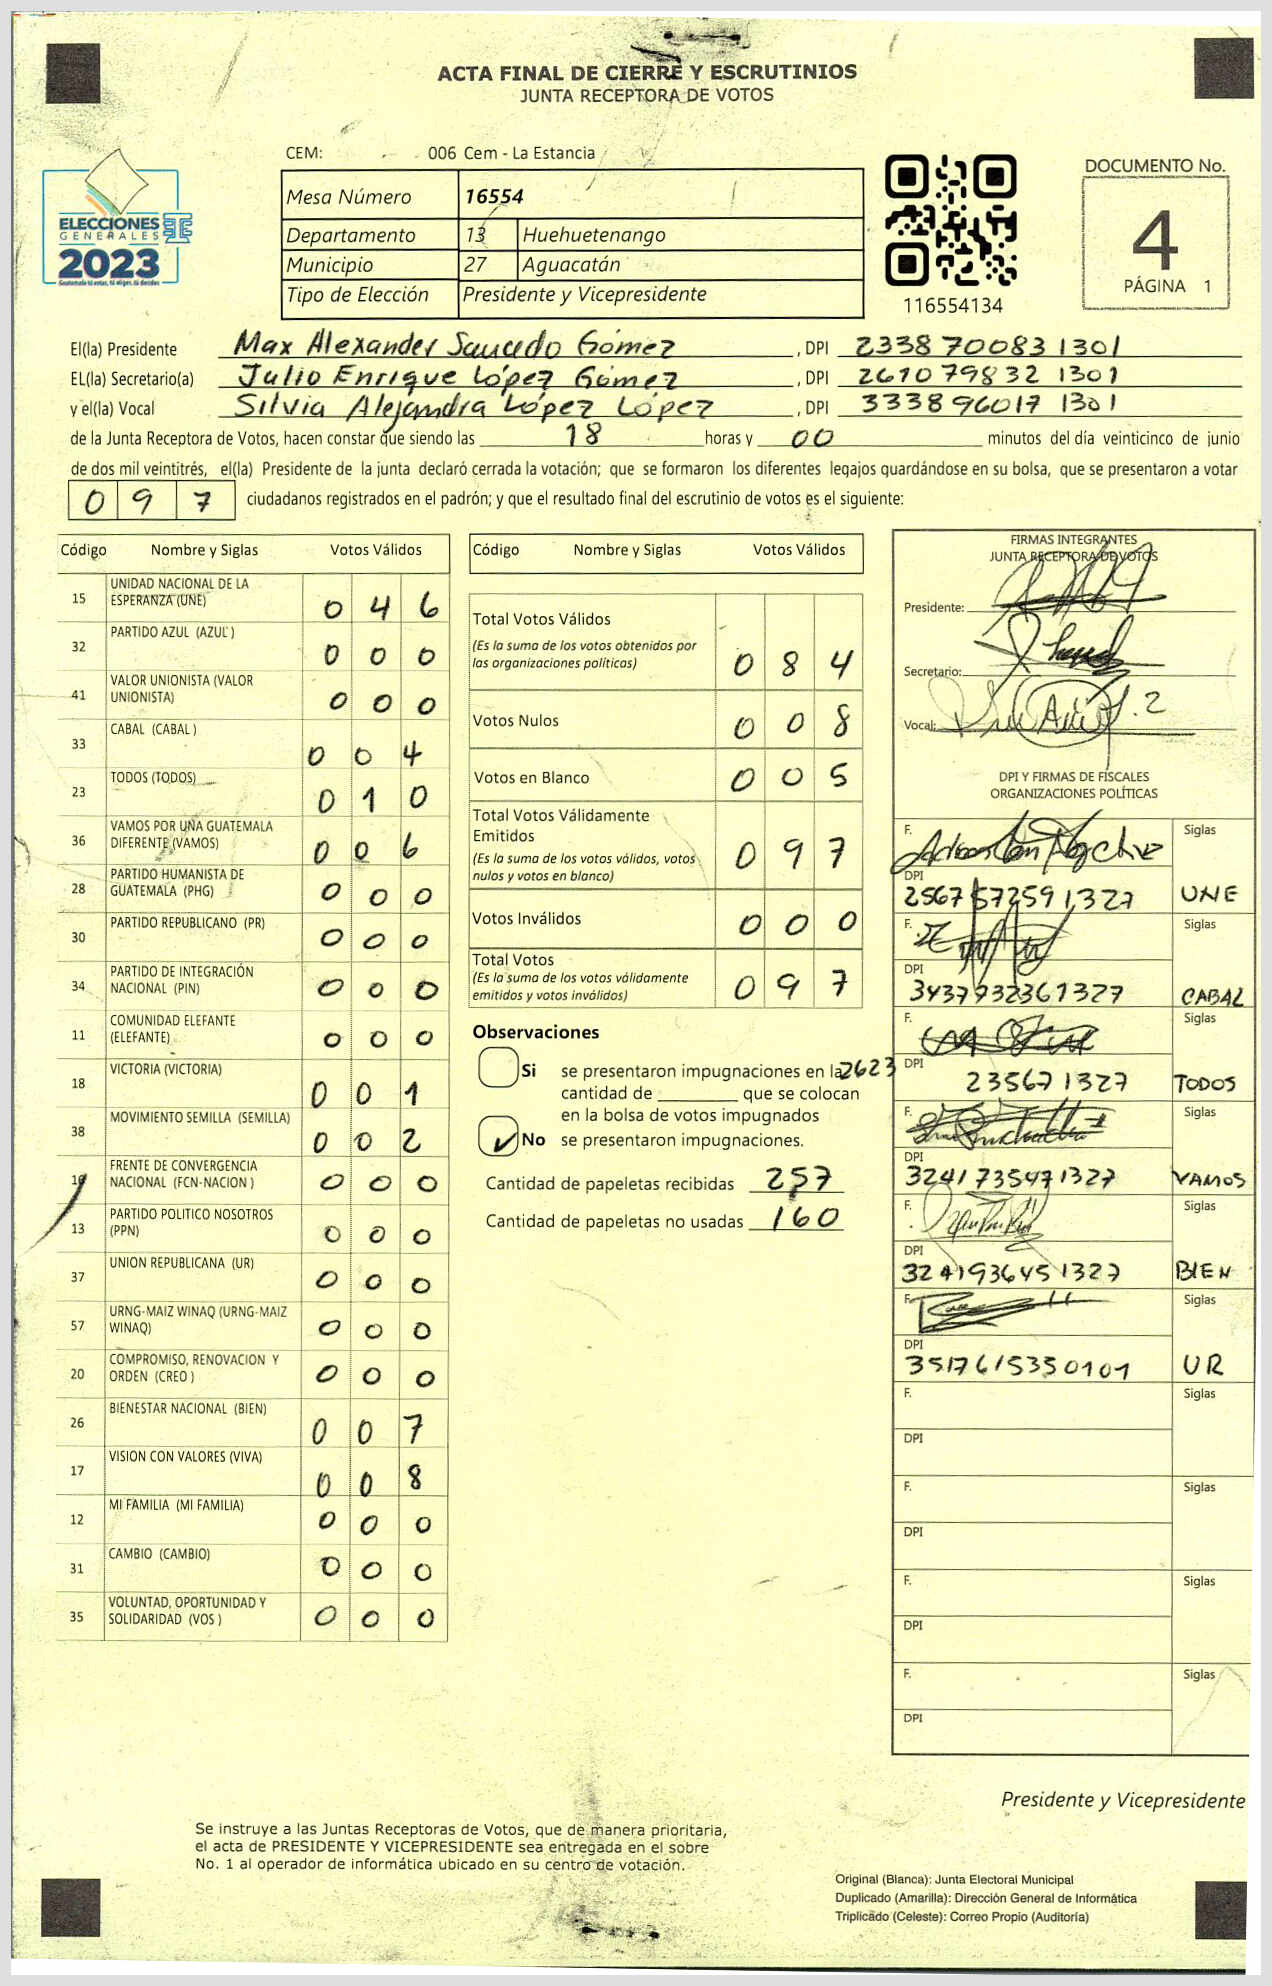 ACTA FINAL DE CIERRE Y ESCRUTINIOS
JUNTA RECEPTORA DE VOTOS
CEM: 006 Cem - La Estancia
Mesa Número 16554
Departamento 13 Huehuetenango
Municipio 27 Aguacatán
Tipo de Elección Presidente y Vicepresidente
ELECCIONES
GENERALES
2023
Guatemala tú votas, tú eliges, tú decides
116554134
DOCUMENTO No.
4
PÁGINA 1
El(la) Presidente Max Alexander Saucedo Gómez, DPI 2338 70083 1301
EL(la) Secretario(a) Julio Enrique López Gómez, DPI 2610 79832 1301
y el(la) Vocal Silvia Alejandra López López, DPI 3338 96017 1301
de la Junta Receptora de Votos, hacen constar que siendo las 18 horas y 00 minutos del día veinticinco de junio
de dos mil veintitrés, el(la) Presidente de la junta declaró cerrada la votación; que se formaron los diferentes legajos guardándose en su bolsa, que se presentaron a votar
097 ciudadanos registrados en el padrón; y que el resultado final del escrutinio de votos es el siguiente:
Código Nombre y Siglas Votos Válidos
15 UNIDAD NACIONAL DE LA ESPERANZA (UNE) 046
32 PARTIDO AZUL (AZUL ) 000
41 VALOR UNIONISTA (VALOR UNIONISTA) 000
33 CABAL (CABAL ) 004
23 TODOS (TODOS) 010
36 VAMOS POR UNA GUATEMALA DIFERENTE (VAMOS) 006
28 PARTIDO HUMANISTA DE GUATEMALA (PHG) 000
30 PARTIDO REPUBLICANO (PR) 000
34 PARTIDO DE INTEGRACIÓN NACIONAL (PIN) 000
11 COMUNIDAD ELEFANTE (ELEFANTE) 000
18 VICTORIA (VICTORIA) 001
38 MOVIMIENTO SEMILLA (SEMILLA) 002
16 FRENTE DE CONVERGENCIA NACIONAL (FCN-NACION ) 000
13 PARTIDO POLITICO NOSOTROS (PPN) 000
37 UNION REPUBLICANA (UR) 000
57 URNG-MAIZ WINAQ (URNG-MAIZ WINAQ) 000
20 COMPROMISO, RENOVACION Y ORDEN (CREO ) 000
26 BIENESTAR NACIONAL (BIEN) 007
17 VISION CON VALORES (VIVA) 008
12 MI FAMILIA (MI FAMILIA) 000
31 CAMBIO (CAMBIO) 000
35 VOLUNTAD, OPORTUNIDAD Y SOLIDARIDAD (VOS ) 000
Código Nombre y Siglas Votos Válidos
Total Votos Válidos 084
(Es la suma de los votos obtenidos por
las organizaciones políticas)
Votos Nulos 008
Votos en Blanco 005
Total Votos Válidamente
Emitidos 097
(Es la suma de los votos válidos, votos
nulos y votos en blanco)
Votos Inválidos 000
Total Votos 097
(Es la suma de los votos válidamente
emitidos y votos inválidos)
Observaciones
Si se presentaron impugnaciones en la
cantidad de ________ que se colocan
en la bolsa de votos impugnados
No se presentaron impugnaciones.
Cantidad de papeletas recibidas 257
Cantidad de papeletas no usadas 160
FIRMAS INTEGRANTES
JUNTA RECEPTORA DE VOTOS
Presidente:
Secretario:
Vocal:
DPI Y FIRMAS DE FISCALES
ORGANIZACIONES POLÍTICAS
F. Siglas
DPI 2567 57259 1327 UNE
F. Siglas
DPI 3437932361327 CABAL
F. Siglas
2623
DPI 235671327 TODOS
F. Siglas
DPI 3241735971327 VAMOS
F. Siglas
DPI 3241936451327 BIEN
F. Siglas
DPI 3517615350101 UR
F. Siglas
DPI
F. Siglas
DPI
F. Siglas
DPI
F. Siglas
DPI
Presidente y Vicepresidente
Se instruye a las Juntas Receptoras de Votos, que de manera prioritaria,
el acta de PRESIDENTE Y VICEPRESIDENTE sea entregada en el sobre
No. 1 al operador de informática ubicado en su centro de votación.
Original (Blanca): Junta Electoral Municipal
Duplicado (Amarilla): Dirección General de Informática
Triplicado (Celeste): Correo Propio (Auditoría)